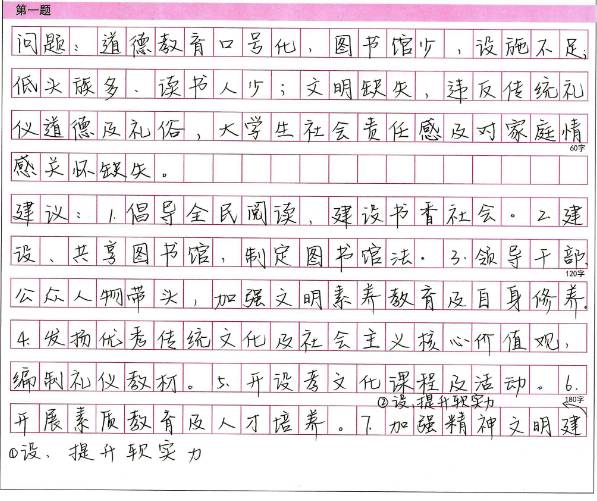 第一题
问题：道德教育口号化，图书馆少，设施不足；
低头族多、读书人少；文明缺失，违反传统礼
仪道德及礼俗，大学生社会责任感及对家庭情
60字
感关怀缺失。
建议：1.倡导全民阅读，建设书香社会。2.建
设、共享图书馆，制定图书馆法。3.领导干部、
120字
公众人物带头，加强文明素养教育及自身修养。
4.发扬优秀传统文化及社会主义核心价值观，
编制礼仪教材。5.开设孝文化课程及活动。6.
②设、提升软实力
180字
开展素质教育及人才培养。7.加强精神文明建
①设、提升软实力